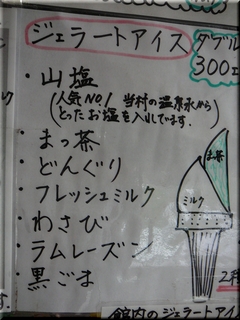 ジェラートアイス
ダブル
300
・山塩
(人気NO.1 当村の温泉水から
とったお塩を入れています.
・まっ茶
・どんぐり
・フレッシュミルク
・わさび
・ラムレーズン
・黒ごま
まっ茶
ミルク
館内のジェラートアイ